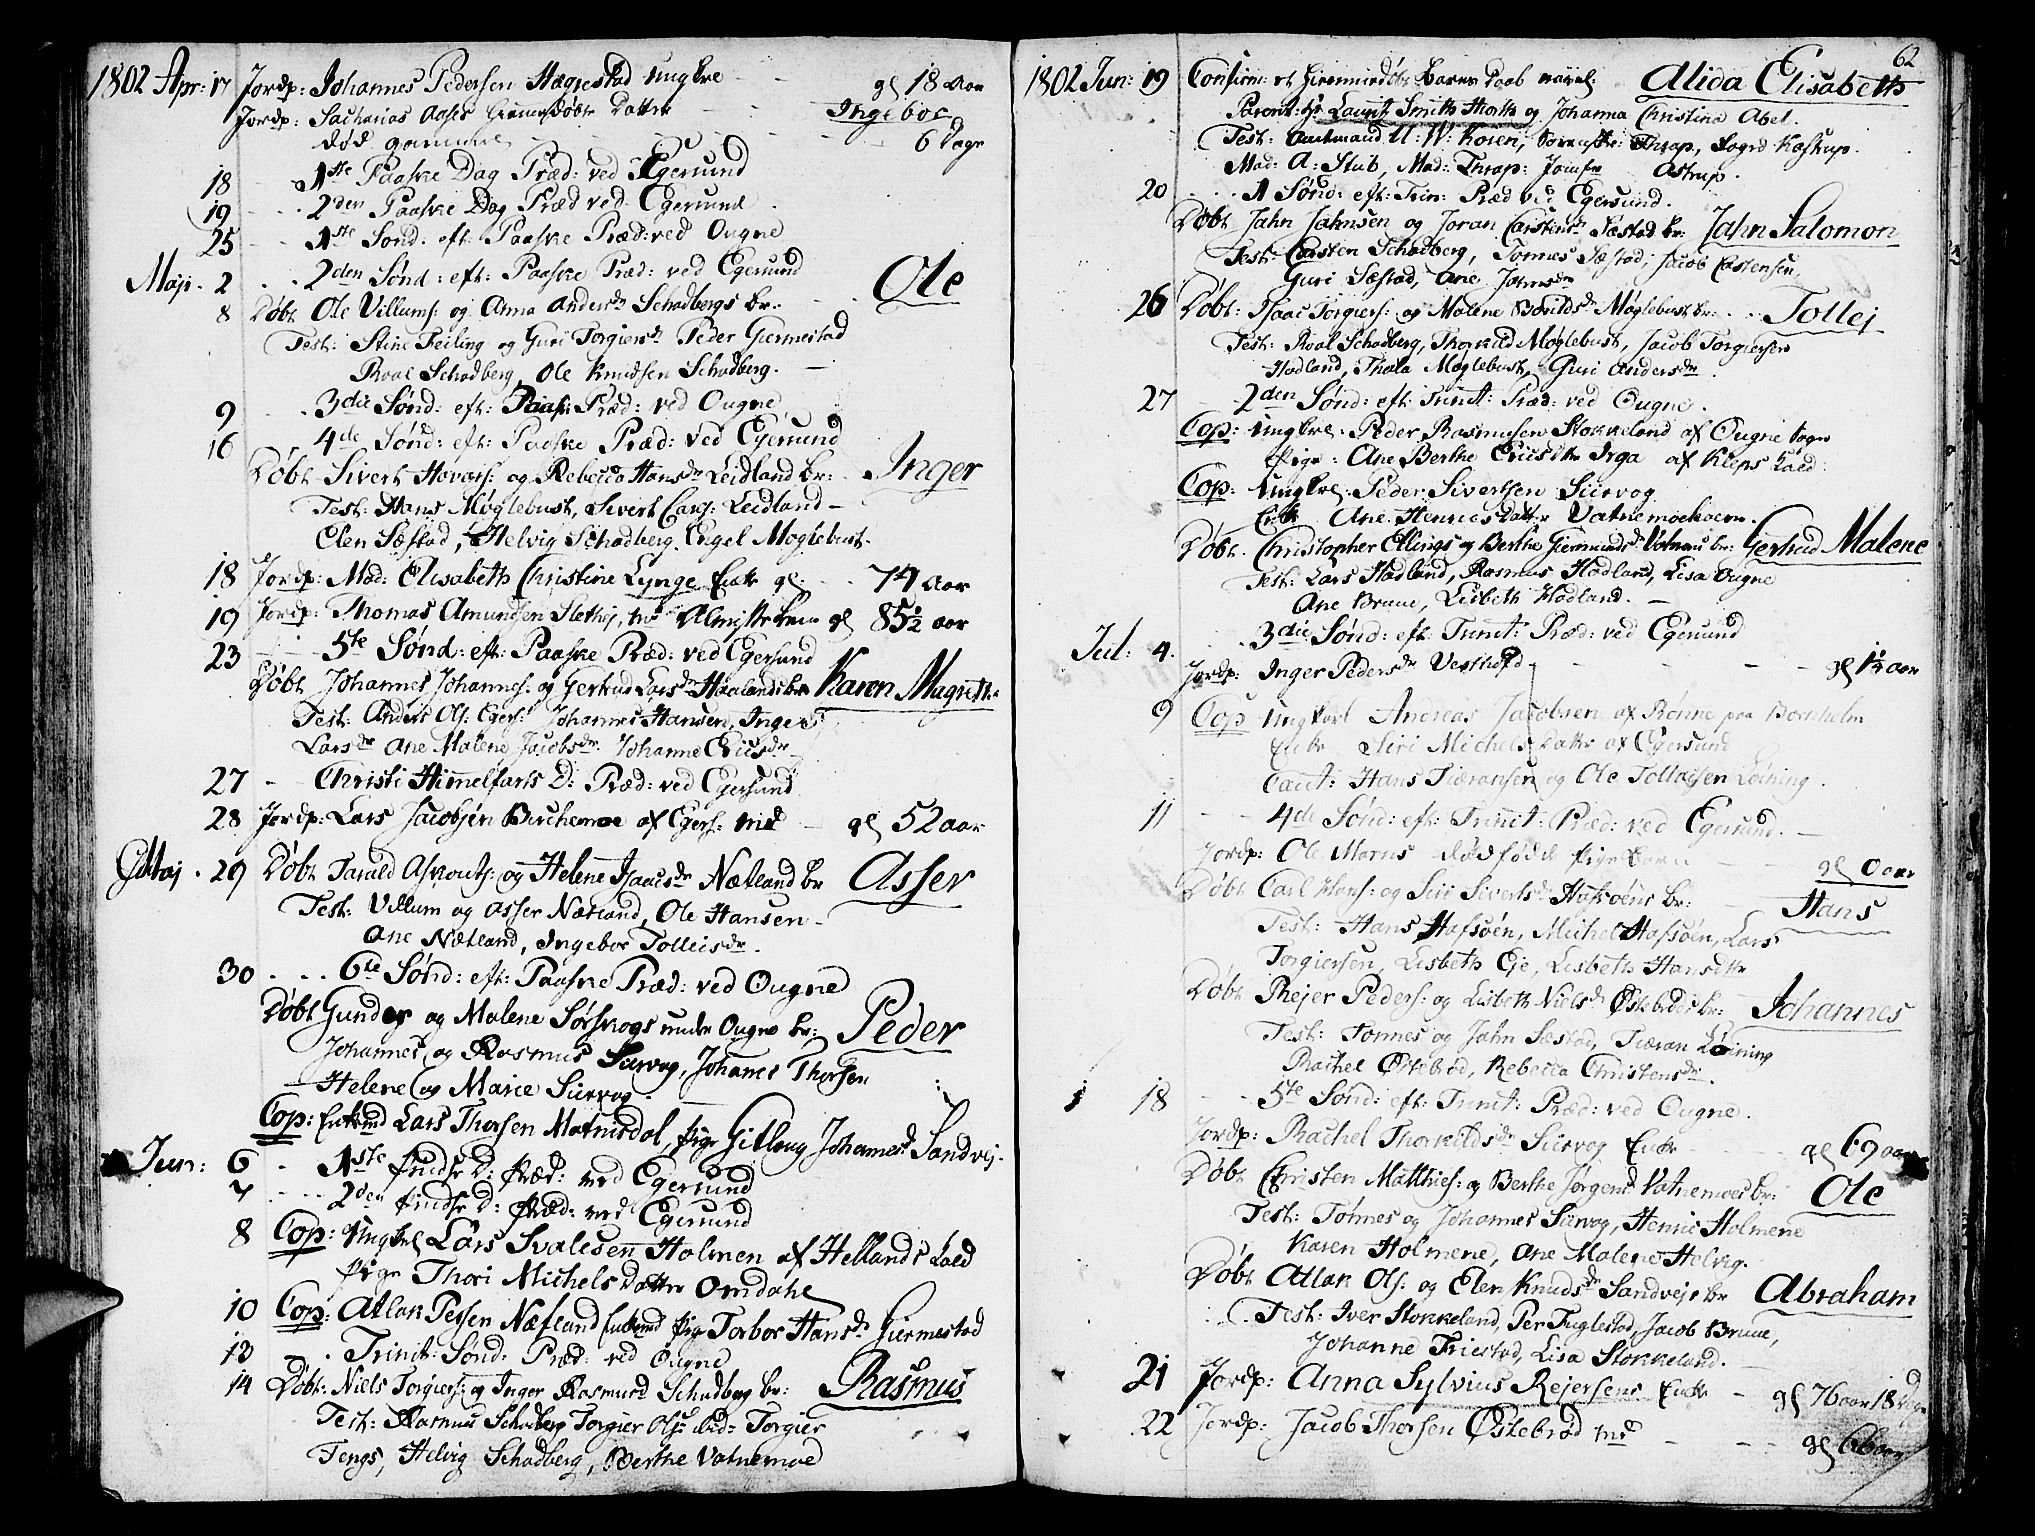 1802 Apr: 17 Jordp: Johannes Pedersen Hægrestad ungkre - - gl 18 aar
Jordp: Sacharias Aases hiemedøbte Datter - - Ingebor
død gammel - - - - 6 Dage
18 - - 1ste Paaske Dag Præd: ved Egersund
19 - - 2den Paaske Dag Præd: ved Egersund
25 - - 1ste Sønd: eft: Paaske Præd: ved Ougne
Maji. 2 . . 2den Sønd: eft: Paaske Præd: ved Egersund
8 Døbt Ole Villums: og Anna Andersdr Schadbergs br. - - Ole
Test: Stine Feiling og Guri Torgiersdr Peder Giermestad
Roal Schadberg, Ole Knudsen Schadberg. -
9 - . 3die Sønd: eft: Paaske Præd: ved Ougne
16 4de Sønd: eft: Paaske Præd: ved Egersund
Døbt Sivert Hovars: og Rebecca Hansdr Leidland br: - Inger
Test: Hans Møglebust, Sivert Lars: Leidland -
Elen Sæstad, Helvig Schadberg. Engel Møglebust.
18 Jordp: Mad: Elisabeth Christine Lynge Enke gl. - - 74 aar
19 Jordp: Thomas Amundsen Sletthej, md Almisselem gl 85½ aar
23 - - 5te Sønd: eft: Paaske Præd: ved Egersund
Døbt Johannes Johannes: og Gertrud Larsdr Haalands br. Karen Magrethe
Test: Anders Ols: Egers: Johannes Hansen, Inger
Larsdr Ane Malene Jacobsdr Johanne Ericsdr
27 - - Christi Himmelfarts D: Præd: ved Egersund
28 Jordp: Lars Jacobsen Birchemoe af Egers: md - gl 52 aar
Maj . 29 Døbt Tarald Askouts: og Helene Isaacsdr Nætland br Asser
Test: Villum og Asser Nætland, Ole Hansen -
Ane Nætland, Ingebor Tolleisdr.
30 . . . 6te Sønd: eft: Paaske Præd: ved Ougne
Døbt Gunder og Malene Sørskogs under Ougne br: Peder
Johannes og Rasmus Siirvog, Johannes Thorsen
Helene og Marie Siirvog.
Cop: Enkemd Lars Thorsen Matnisdal, pige Gitlaug Johannesdr Sandvej.
Jun: 6 - 1ste Pindse D: Præd: ved Egersund
7 - - - 2den Pindse D: Præd: ved Egersund
8 Cop: Ungkrl Lars Svalesen Holmen af Hellands Kald
Pige Thori Michels Datter Omdahl
10 Cop: Atlak Persen Nætland Enkemd pige Torbor Hansdr Giermestad
13 - . Trinit: Sønd: Præd: ved Ougne
14 Døbt: Niels Torgiers: og Inger Rasmusd Schadberg br: Rasmus
Test: Rasmus Schadberg Torgier Ols: ibid: Torgier
Tengs, Helvig Schadberg, Berthe Vatnemoe
62
1802 Jun: 19 Confirm: et hiemmedøbt Barns Daab navnl: Alida Elisabeth
Parent: Hr Lauritz Smith Thorth og Johanna Christina Abel.
Test: Amtmand U: W: Koren, Thrap, Foged Kastrup.
Mad: A: Stub, Mad: Thrap: Jomfr Astrup.
20 . . . 1 Sønd: eft: Trin: Præd ved Egersund.
Døbt Jahn Jahnsen og Joran Carstensdr Sæstad br: Jahn Salomon
Test: Carsten Schadberg, Tønnes Sæstad, Jacob Castensen,
Guri Sæstad, Ane Jahnsdr
26 Døbt: Isaac Torgiers: og Malene Møglebust br: . . Tollej
Test: Roal Schadberg, Thorkild Møglebust, Jacob Torgiersen
Hadland, Thala Møglebust, Guri Andersdr.
27 - - 2den Sønd: eft: Trinit: Præd: ved Ougne.
Cop: Ungkrl. Peder Rasmussen Stokkeland af Ougne Sogn
Pige: Ane Berthe Ericsdtr Irga af Kleps Kald.
Cop: Ungkrl. Peder Sivertsen Siirvog
Enke Ane Henrics Datter Vatnemoehoem.
Døbt. Christopher Ellings: og Berthe Giermundsdr Vatnes br: Gertrud Malene
Test: Lars Hadland, Rasmus Hadland, Lisa Ougne
Ane Brune, Lisbeth Hadland. -
Jul: 4. . . 3die Sønd: eft: Trinit: Præd: ved Egersund
Jordp: Inger Pedersdr Vestkald - - - - gl 1½ aar
9 Cop Ungkarl Andreas Jacobsen af Rønne paa Bornholm
Enke Siri Michels Datter af Egersund
Caut: Hans Tiæransen og Ole Tollacsen Løining.
11 - - 4de Sønd: eft: Trinit: Præd: ved Egersund. -
Jordp: Ole Marns dødfødt pigebarn - - gl 0 aar
Døbt Carl Hans: og Siri Sivertsdr Hafsøens br: - Hans
Test: Hans Hafsøen, Michel Hafsøen, Lars
Torgiersen, Lisbeth Eje, Lisbeth Hansdtr
Døbt Rejer Peders: og Lisbeth Nielsdr Østebrøds br: Johannes
Test: Tønnes og Jahn Sæstad, Tiæran Løining
Rachel Østebrød, Rebecca Christensdr.
18 - - 5te Sønd: eft: Trinit: Præd: ved Ougne.
Jordp: Rachel Thorkildsdr Siirvog Enke - - - gl 69 aar
Døbt Christen Matthies: og Berthe Jørgensd Vatnemoes br: Ole
Test: Tønnes og Johannes Siirvog, Henric Holmene
Karen Holmene, Ane Malene Helvig.
Døbt Atlak Ols: og Elen Knudsdr Sandveje br Abraham
Test: Iver Stokkeland, Per Fuglestad, Jacob Brune,
Johanne Friestad, Lisa Stokkeland. -
21 Jordp: Anna Sylvius Rejersens Enke - gl 76 aar 18 d
22 Jordp: Jacob Thorsen Østebrød md - - - gl 66 aar